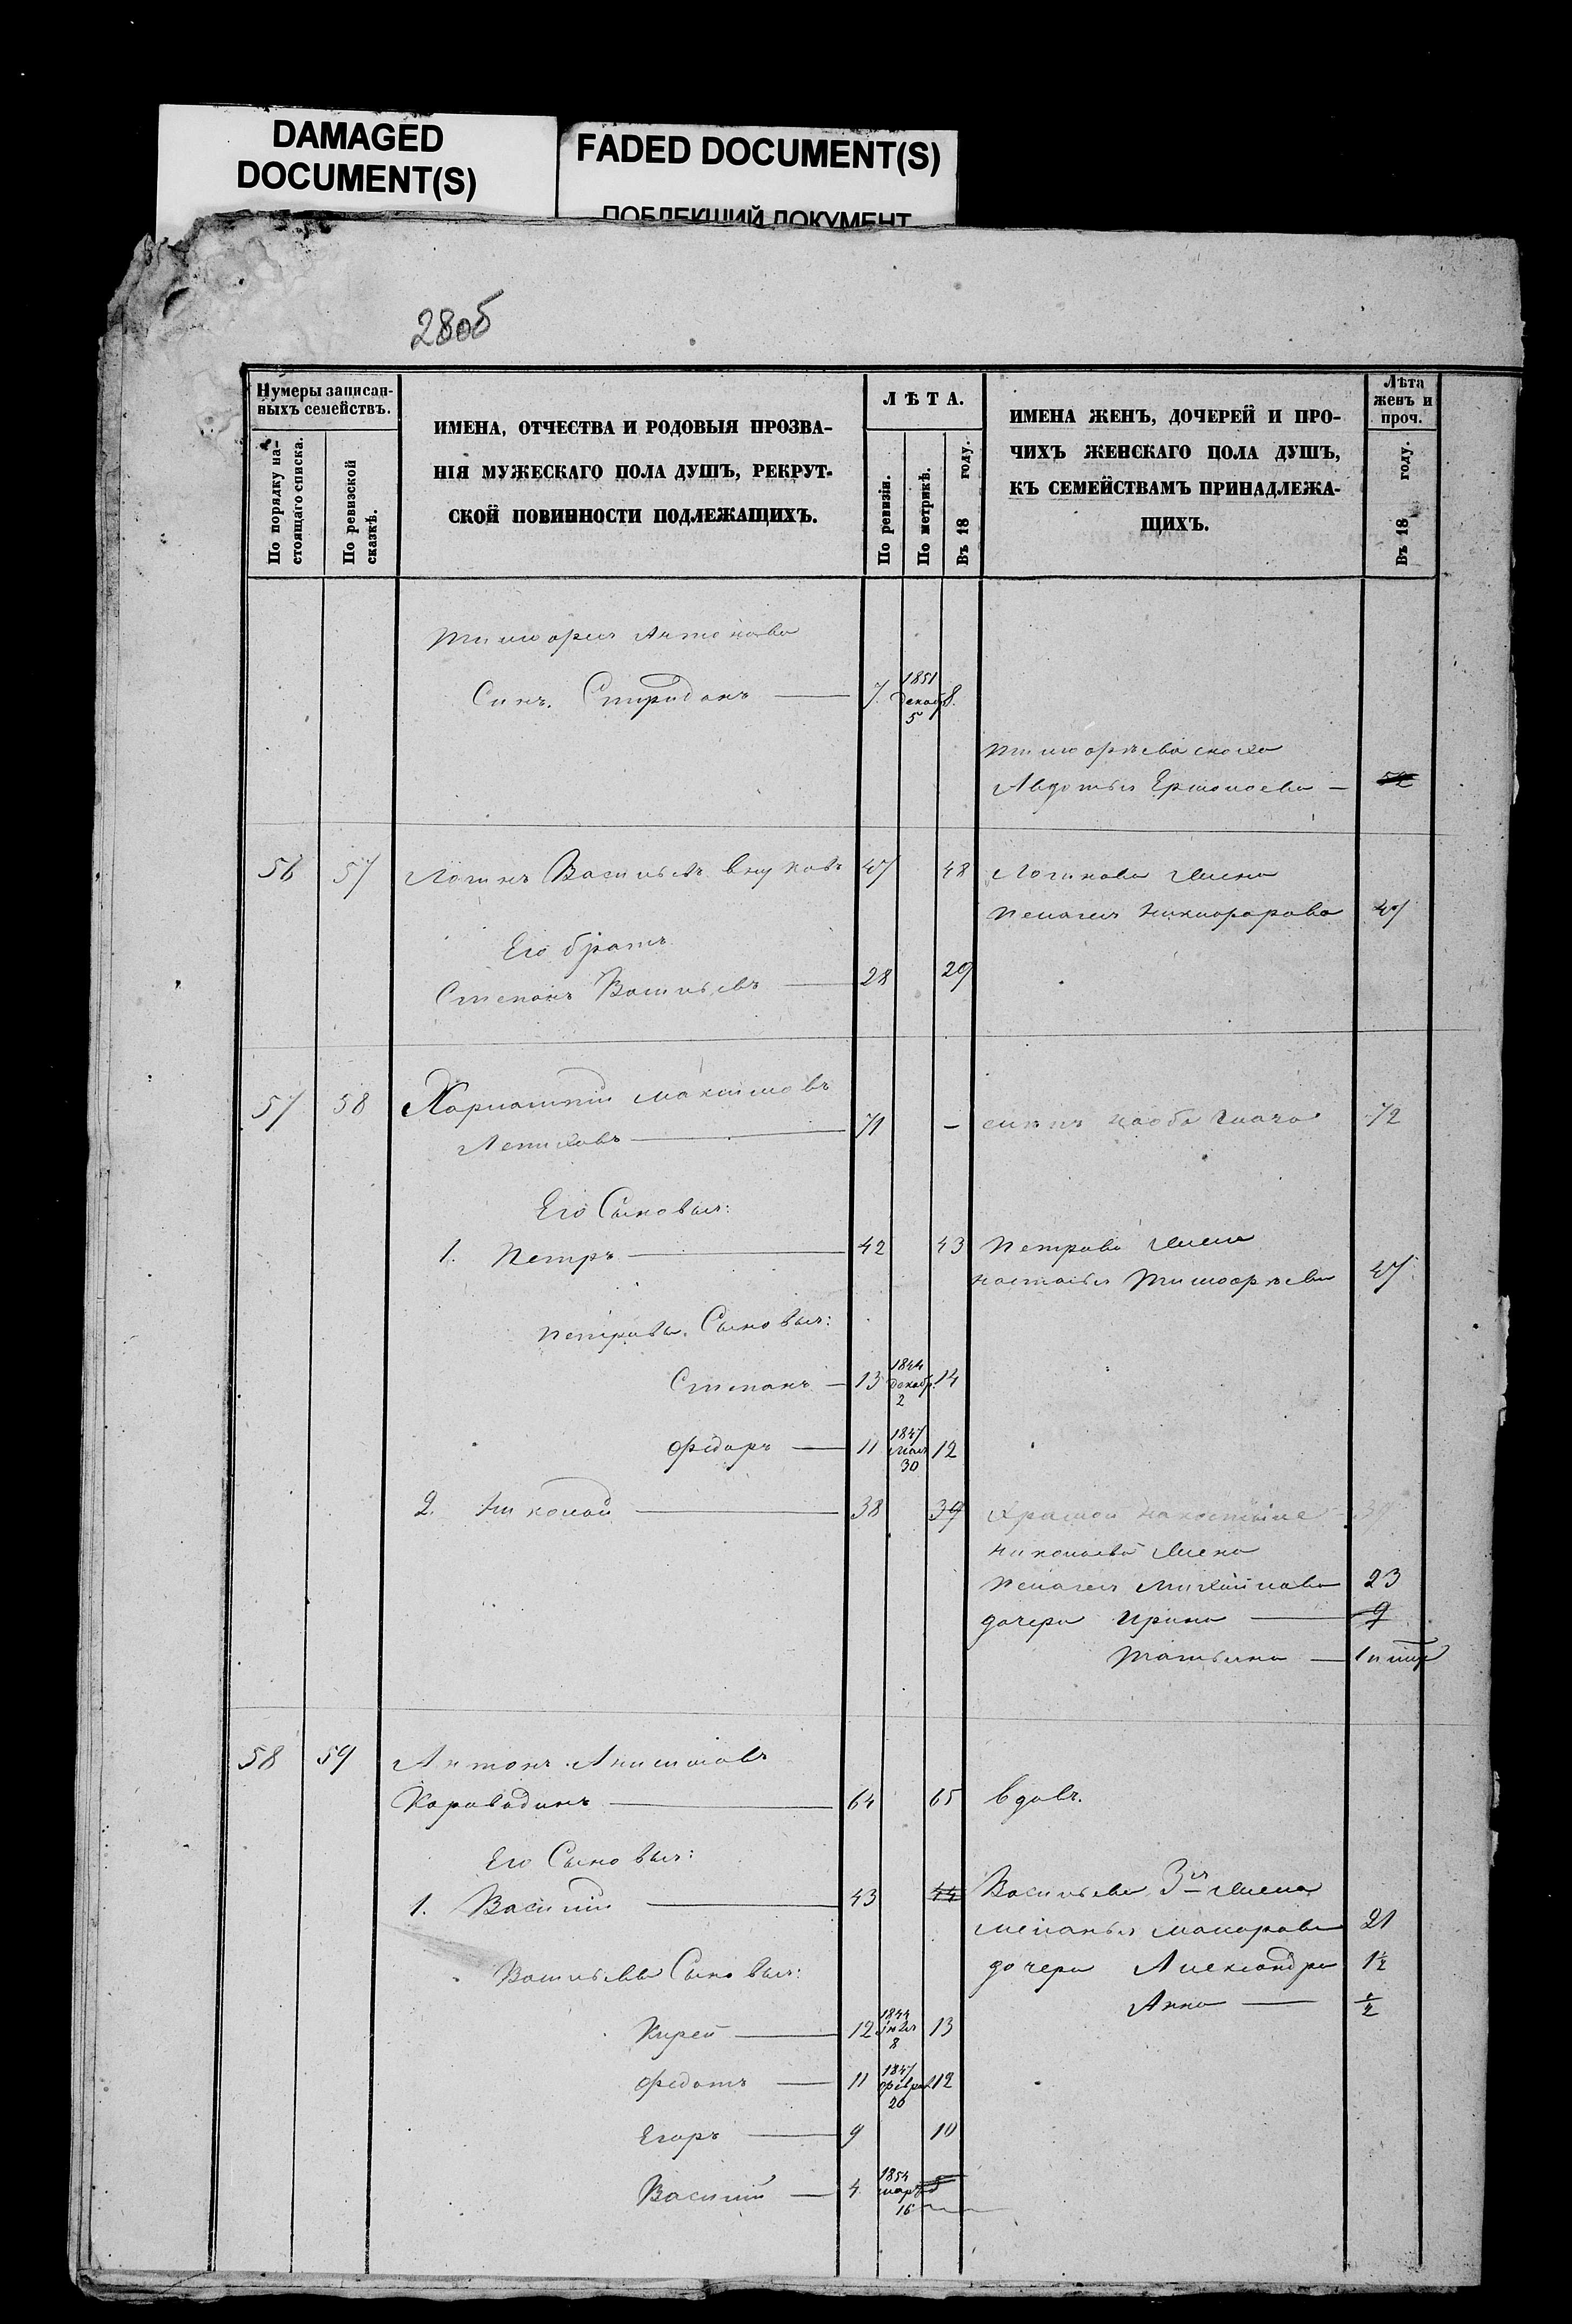 DAMAGED
DOCUMENT(S)
FADED DOCUMENT(S)
ПОБЛЕКШИЙ ДОКУМЕНТ
28об
Нумеры записан-
ныхъ семействъ.
По порядку на-
стоящаго списка.
По ревизской
сказкѣ.
ИМЕНА, ОТЧЕСТВА И РОДОВЫЯ ПРОЗВА-
НІЯ МУЖЕСКАГО ПОЛА ДУШЪ, РЕКРУТ-
СКОЙ ПОВИННОСТИ ПОДЛЕЖАЩИХЪ.
ЛѢТА.
По ревизіи.
По метрикѣ.
Въ 18 году.
ИМЕНА ЖЕНЪ, ДОЧЕРЕЙ И ПРО-
ЧИХЪ ЖЕНСКАГО ПОЛА ДУШЪ,
КЪ СЕМЕЙСТВАМЪ ПРИНАДЛЕЖА-
ЩИХЪ.
Лѣта
женъ и
проч.
Въ 18 году.
Тимофея Антонова
Сынъ. Спиридонъ — 7 1851 декаб 5 8.
Тимофѣева сноха
Авдотья Ермолаева — 52
56 57 Логинъ Васильевъ Внуковъ 47 48 Логинова жена
Пелагея Никифорова 47
Его братъ
Степанъ Васильевъ — 28 29
57 58 Харлампій Максимовъ
71 — 72
Его Сыновья:
1. Петръ — 42 43 Петрова жена
Настасья Тимофѣева 47
Петровы Сыновья:
Степанъ — 13 1844 декаб. 2 14
Федоръ — 11 1847 мая 30 12
2. Николай — 38 39
Николаева жена
Пелагея Михайлова 23
дочери Ирина — 9
Татьяна —
58 59 Антонъ Анисимовъ
Караводинъ — 64 65 вдовъ.
Его Сыновья:
1. Василій — 43 44 Васильева 3я жена
Меланья Макарова 21
дочери Александра 1½
Анна — ½
Васильевы Сыновья:
Кирей — 12 1844 8 13
Федотъ — 11 1847 феврал 20 12
Егоръ — 9 10
Василій — 4 1854 мар 16 5